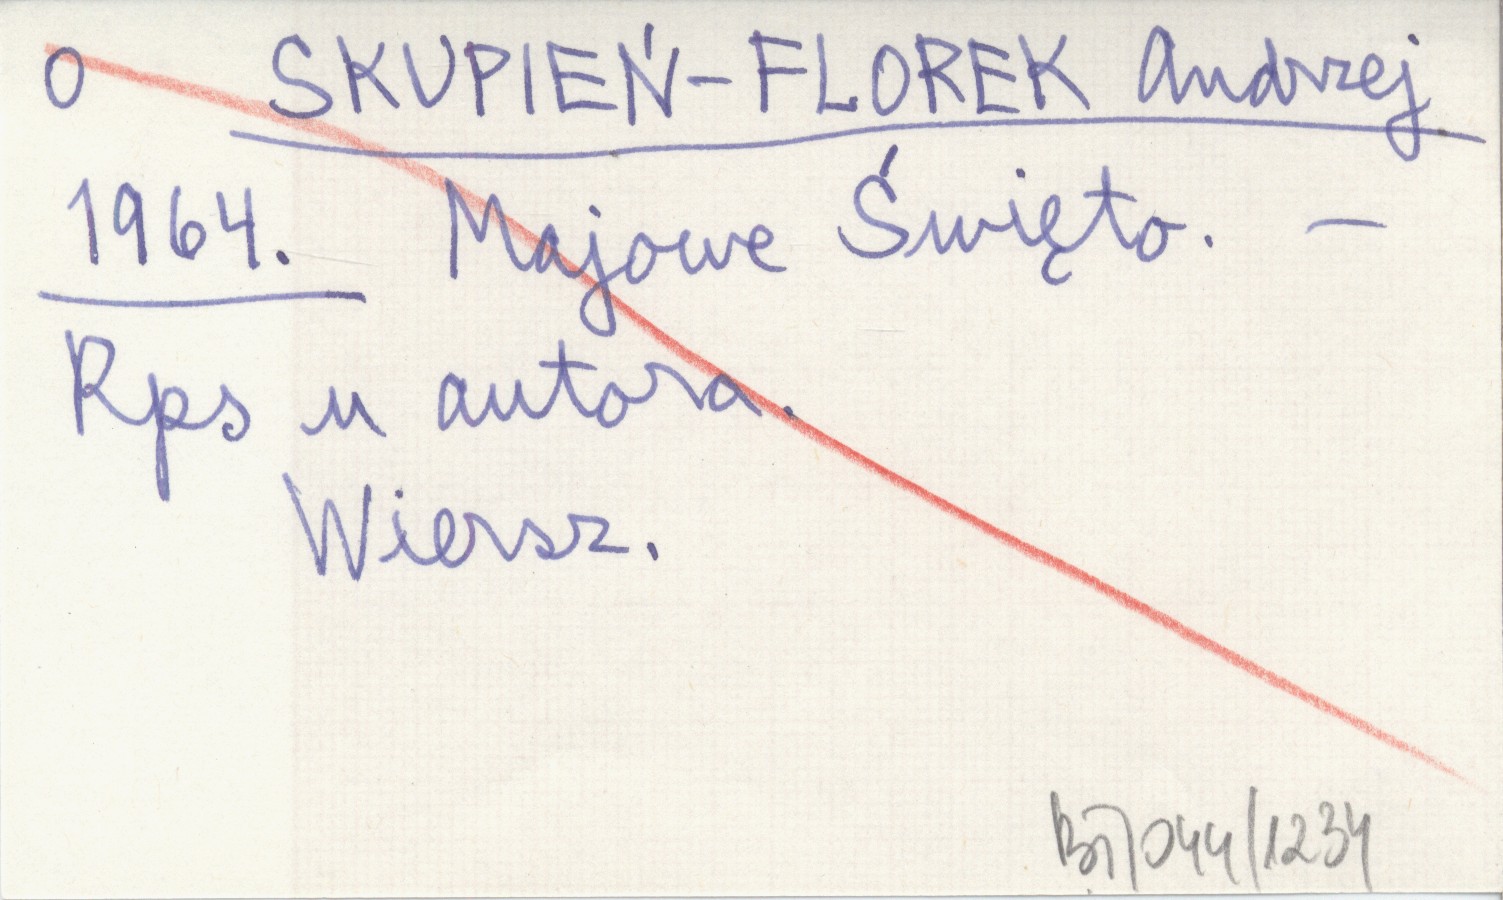 O SKUPIEŃ-FLOREK Andrzej
1964. Majowe Święto. —
Rps u autora.
Wiersz.
/044/1234